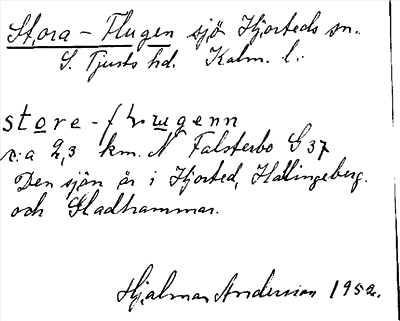 Stora-Flugen sjö Hjorteds sn.
S. Tjusts hd. Kalm. l.
store-flugenn
c:a 2,3 km. N Falsterbo G 37
Den sjön är i Hjorted, Hallingeberg.
och Gladhammar.
Hjalmar Andersson 1952.